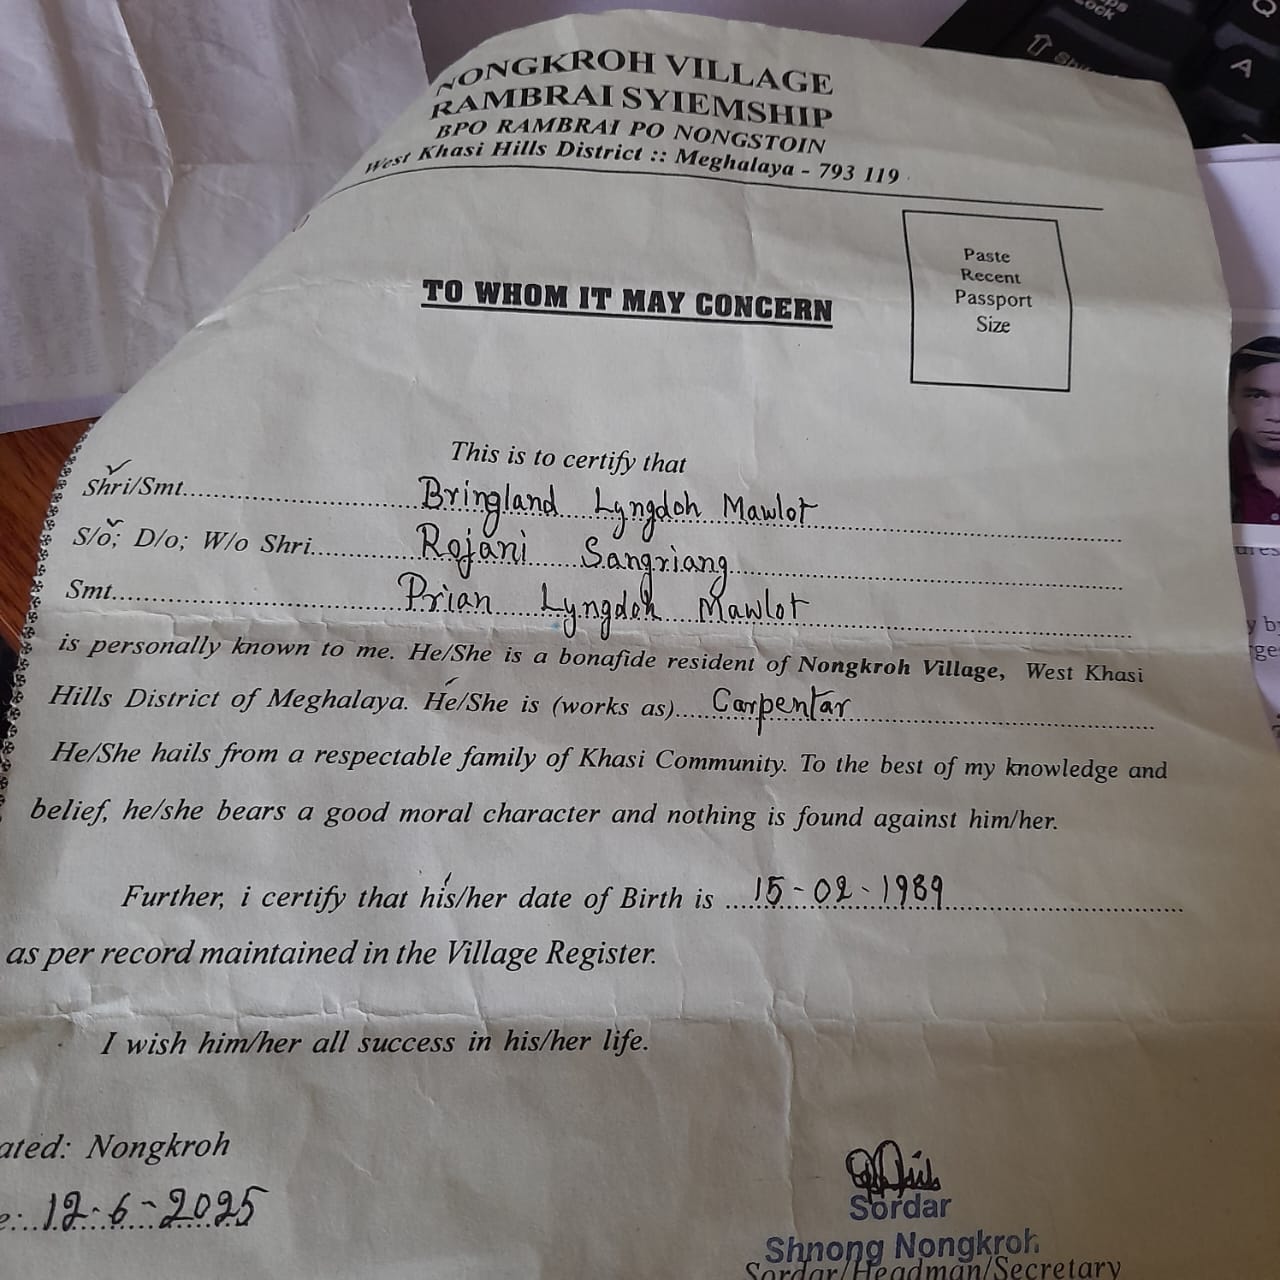 NONGKROH VILLAGE
RAMBRAI SYIEMSHIP
BPO RAMBRAI PO NONGSTOIN
West Khasi Hills District :: Meghalaya - 793 119
Paste
Recent
Passport
Size
TO WHOM IT MAY CONCERN
This is to certify that
Shri/Smt. Bringland Lyngdoh Mawlot
S/o; D/o; W/o Shri. Rojani Sangriang
Smt. Prian Lyngdoh Mawlot
is personally known to me. He/She is a bonafide resident of Nongkroh Village, West Khasi
Hills District of Meghalaya. He/She is (works as) Carpentar
He/She hails from a respectable family of Khasi Community. To the best of my knowledge and
belief, he/she bears a good moral character and nothing is found against him/her.
Further, i certify that his/her date of Birth is 15-02-1989
as per record maintained in the Village Register.
I wish him/her all success in his/her life.
ated: Nongkroh
e: 12-6-2025
Sordar
Shnong Nongkroh
Sordar/Headman/Secretary